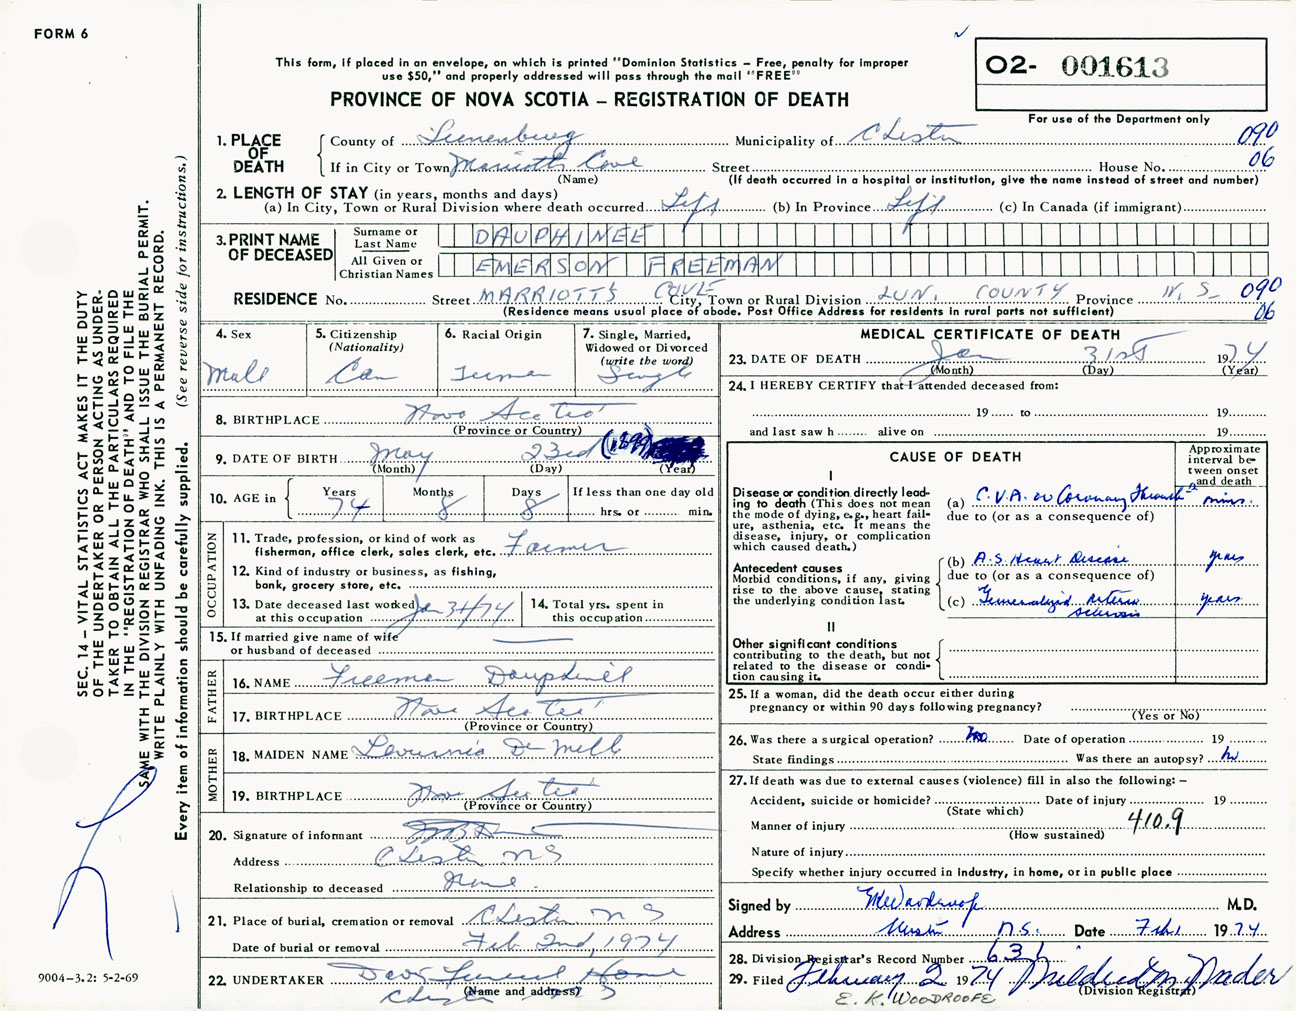 FORM 6
This form, if placed in an envelope, on which is printed "Dominion Statistics – Free, penalty for improper
use $50," and properly addressed will pass through the mail "FREE"
PROVINCE OF NOVA SCOTIA – REGISTRATION OF DEATH
02- 001613
For use of the Department only
1. PLACE OF DEATH
County of Lunenburg Municipality of Chester 090
If in City or Town Marriotts Cove Street House No. 06
(Name) (If death occurred in a hospital or institution, give the name instead of street and number)
2. LENGTH OF STAY (in years, months and days)
(a) In City, Town or Rural Division where death occurred Life (b) In Province Life (c) In Canada (if immigrant)
3. PRINT NAME OF DECEASED
Surname or Last Name DAUPHINEE
All Given or Christian Names EMERSON FREEMAN
RESIDENCE No. Street MARRIOTTS COVE City, Town or Rural Division LUN. COUNTY Province N.S. 090
(Residence means usual place of abode. Post Office Address for residents in rural parts not sufficient) 06
4. Sex
Male
5. Citizenship
(Nationality)
Can
6. Racial Origin
German
7. Single, Married,
Widowed or Divorced
(write the word)
Single
8. BIRTHPLACE Nova Scotia
(Province or Country)
9. DATE OF BIRTH May 23rd (1899)
(Month) (Day) (Year)
10. AGE in Years Months Days If less than one day old
74 8 8 hrs. or min.
OCCUPATION
11. Trade, profession, or kind of work as
fisherman, office clerk, sales clerk, etc. Farmer
12. Kind of industry or business, as fishing,
bank, grocery store, etc.
13. Date deceased last worked
at this occupation Jan 31/74
14. Total yrs. spent in
this occupation
15. If married give name of wife
or husband of deceased
FATHER
16. NAME Freeman Dauphinee
17. BIRTHPLACE Nova Scotia
(Province or Country)
MOTHER
18. MAIDEN NAME De Mille
19. BIRTHPLACE Nova Scotia
(Province or Country)
20. Signature of informant
Address Chester N S
Relationship to deceased None.
21. Place of burial, cremation or removal Chester N S
Date of burial or removal Feb. 2nd, 1974
22. UNDERTAKER Funeral Home
(Name and address)
Chester N S
MEDICAL CERTIFICATE OF DEATH
23. DATE OF DEATH Jan 31ST 1974
(Month) (Day) (Year)
24. I HEREBY CERTIFY that I attended deceased from:
19 to 19
and last saw h alive on 19
CAUSE OF DEATH
Approximate
interval be-
tween onset
and death
I
Disease or condition directly lead-
ing to death (This does not mean
the mode of dying, e.g., heart fail-
ure, asthenia, etc. It means the
disease, injury, or complication
which caused death.)
(a) C.V.A. or Coronary mins.
due to (or as a consequence of)
Antecedent causes
Morbid conditions, if any, giving
rise to the above cause, stating
the underlying condition last.
(b) A.S. Heart Disease years
due to (or as a consequence of)
(c) Generalized Arterio years
sclerosis
II
Other significant conditions
contributing to the death, but not
related to the disease or condi-
tion causing it.
25. If a woman, did the death occur either during
pregnancy or within 90 days following pregnancy?
(Yes or No)
26. Was there a surgical operation? no Date of operation 19
State findings Was there an autopsy? no
27. If death was due to external causes (violence) fill in also the following: –
Accident, suicide or homicide? Date of injury 19
(State which)
Manner of injury 410.9
(How sustained)
Nature of injury
Specify whether injury occurred in industry, in home, or in public place
Signed by EKWoodroofe M.D.
Address Chester N.S. Date Feb.1 1974
28. Division Registrar's Record Number 636
29. Filed February 2 1974 Mildred M. Nader
(Division Registrar)
E. K. WOODROOFE
SEC. 14 – VITAL STATISTICS ACT MAKES IT THE DUTY
OF THE UNDERTAKER OR PERSON ACTING AS UNDER-
TAKER TO OBTAIN ALL THE PARTICULARS REQUIRED
IN THE "REGISTRATION OF DEATH" AND TO FILE THE
SAME WITH THE DIVISION REGISTRAR WHO SHALL ISSUE THE BURIAL PERMIT.
WRITE PLAINLY WITH UNFADING INK. THIS IS A PERMANENT RECORD.
Every item of information should be carefully supplied. (See reverse side for instructions.)
9004-3.2: 5-2-69